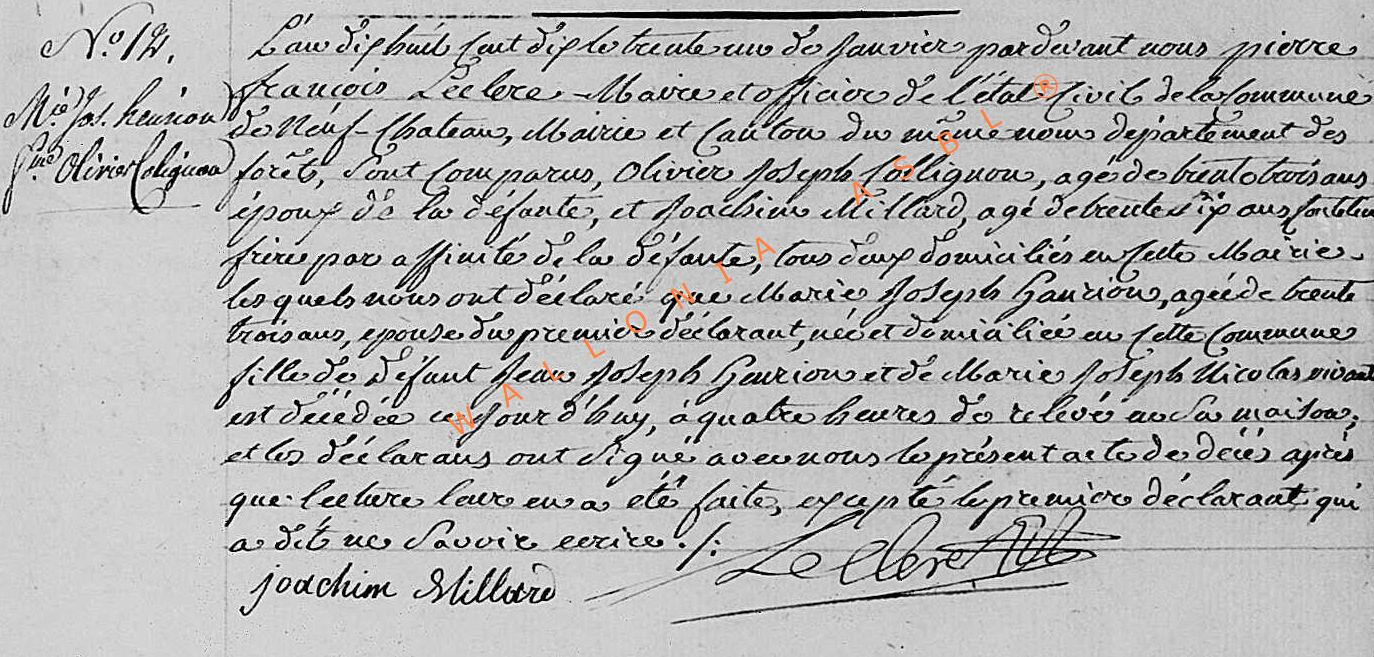 No 12.
Mie Jos. henrion
fme Olivier Colignon
L'an dix huit cent dix le trente un de Janvier pardevant nous pierre
françois Leclere Maire et officier de l'état Civil de la Commune
de Neuf-Chateau, Mairie et Canton du même nom departement des
forêts, sont Comparus, Olivier Joseph Collignon, agé de trente trois ans
époux de la défante, et Joachim Millard, agé de trente six ans
frère par affinité de la défante, tous deux domiciliés en cette Mairie
les quels nous ont déclaré que Marie Joseph Henrion, agée de trente
trois ans, epouse du premier déclarant, née et domiciliée en cette Commune
fille de Défant Jean Joseph Henrion et de Marie Joseph Nicolas vivant
est décédée ce Jourd'huy, à quatre heures de relevé en Sa maison;
et les déclarans ont Signé avec nous le présent acte de décés aprés
que lecture leur en a été faite, excepté le premier déclarant qui
a dit ne Savoir ecrire ./:
Joachim Millard
Leclere
WALLONIA ASBL ®